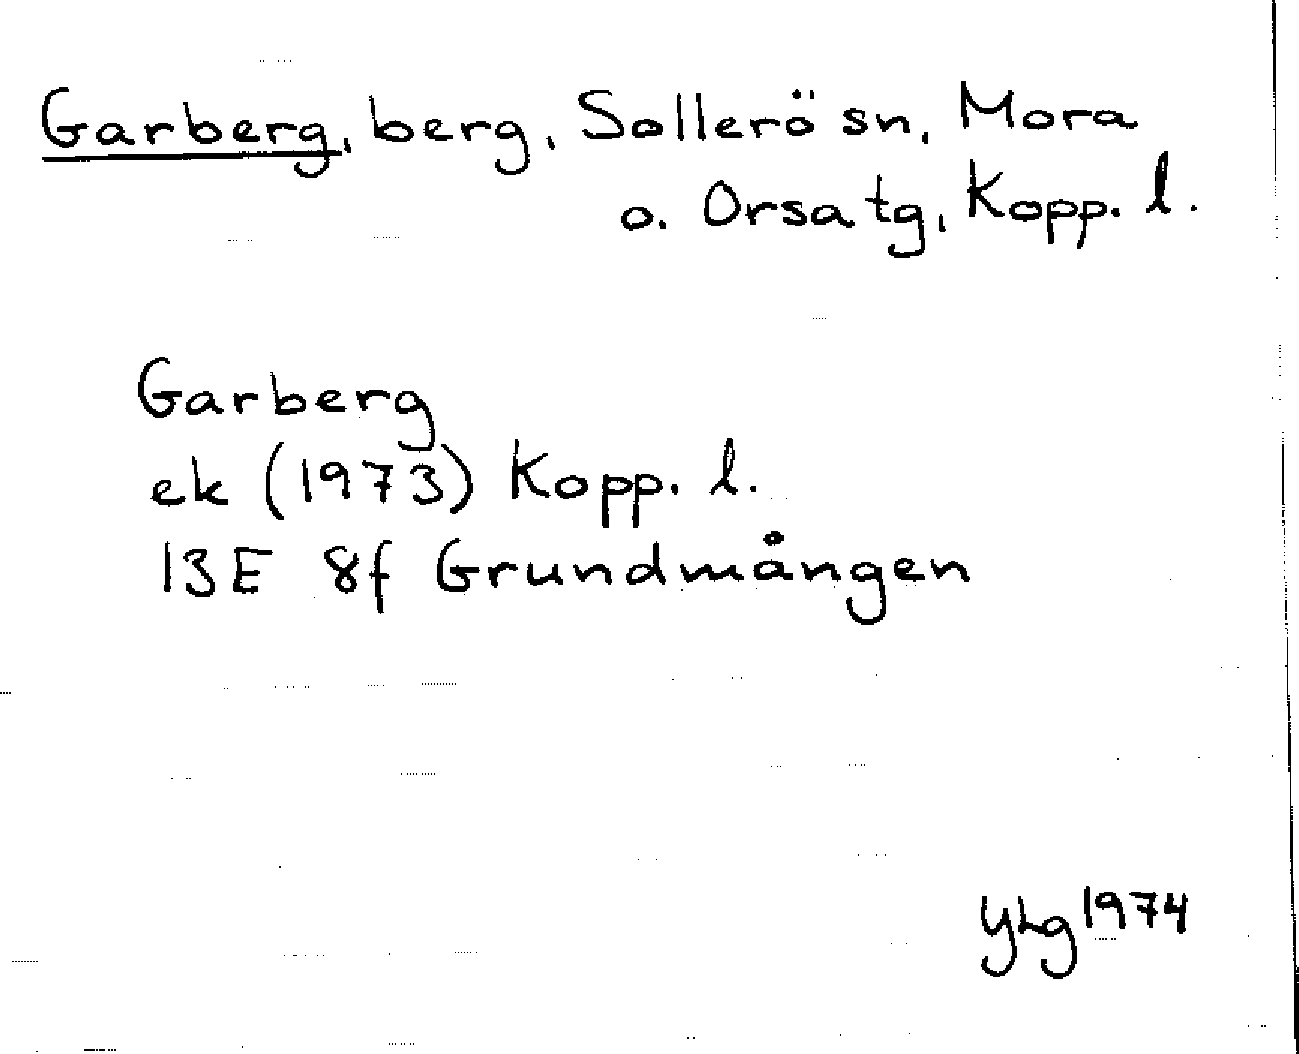 Garberg, berg, Sollerö sn, Mora
o. Orsa tg, Kopp. l.
Garberg
ek (1973) Kopp. l.
13E 8f Grundmången
YLg 1974